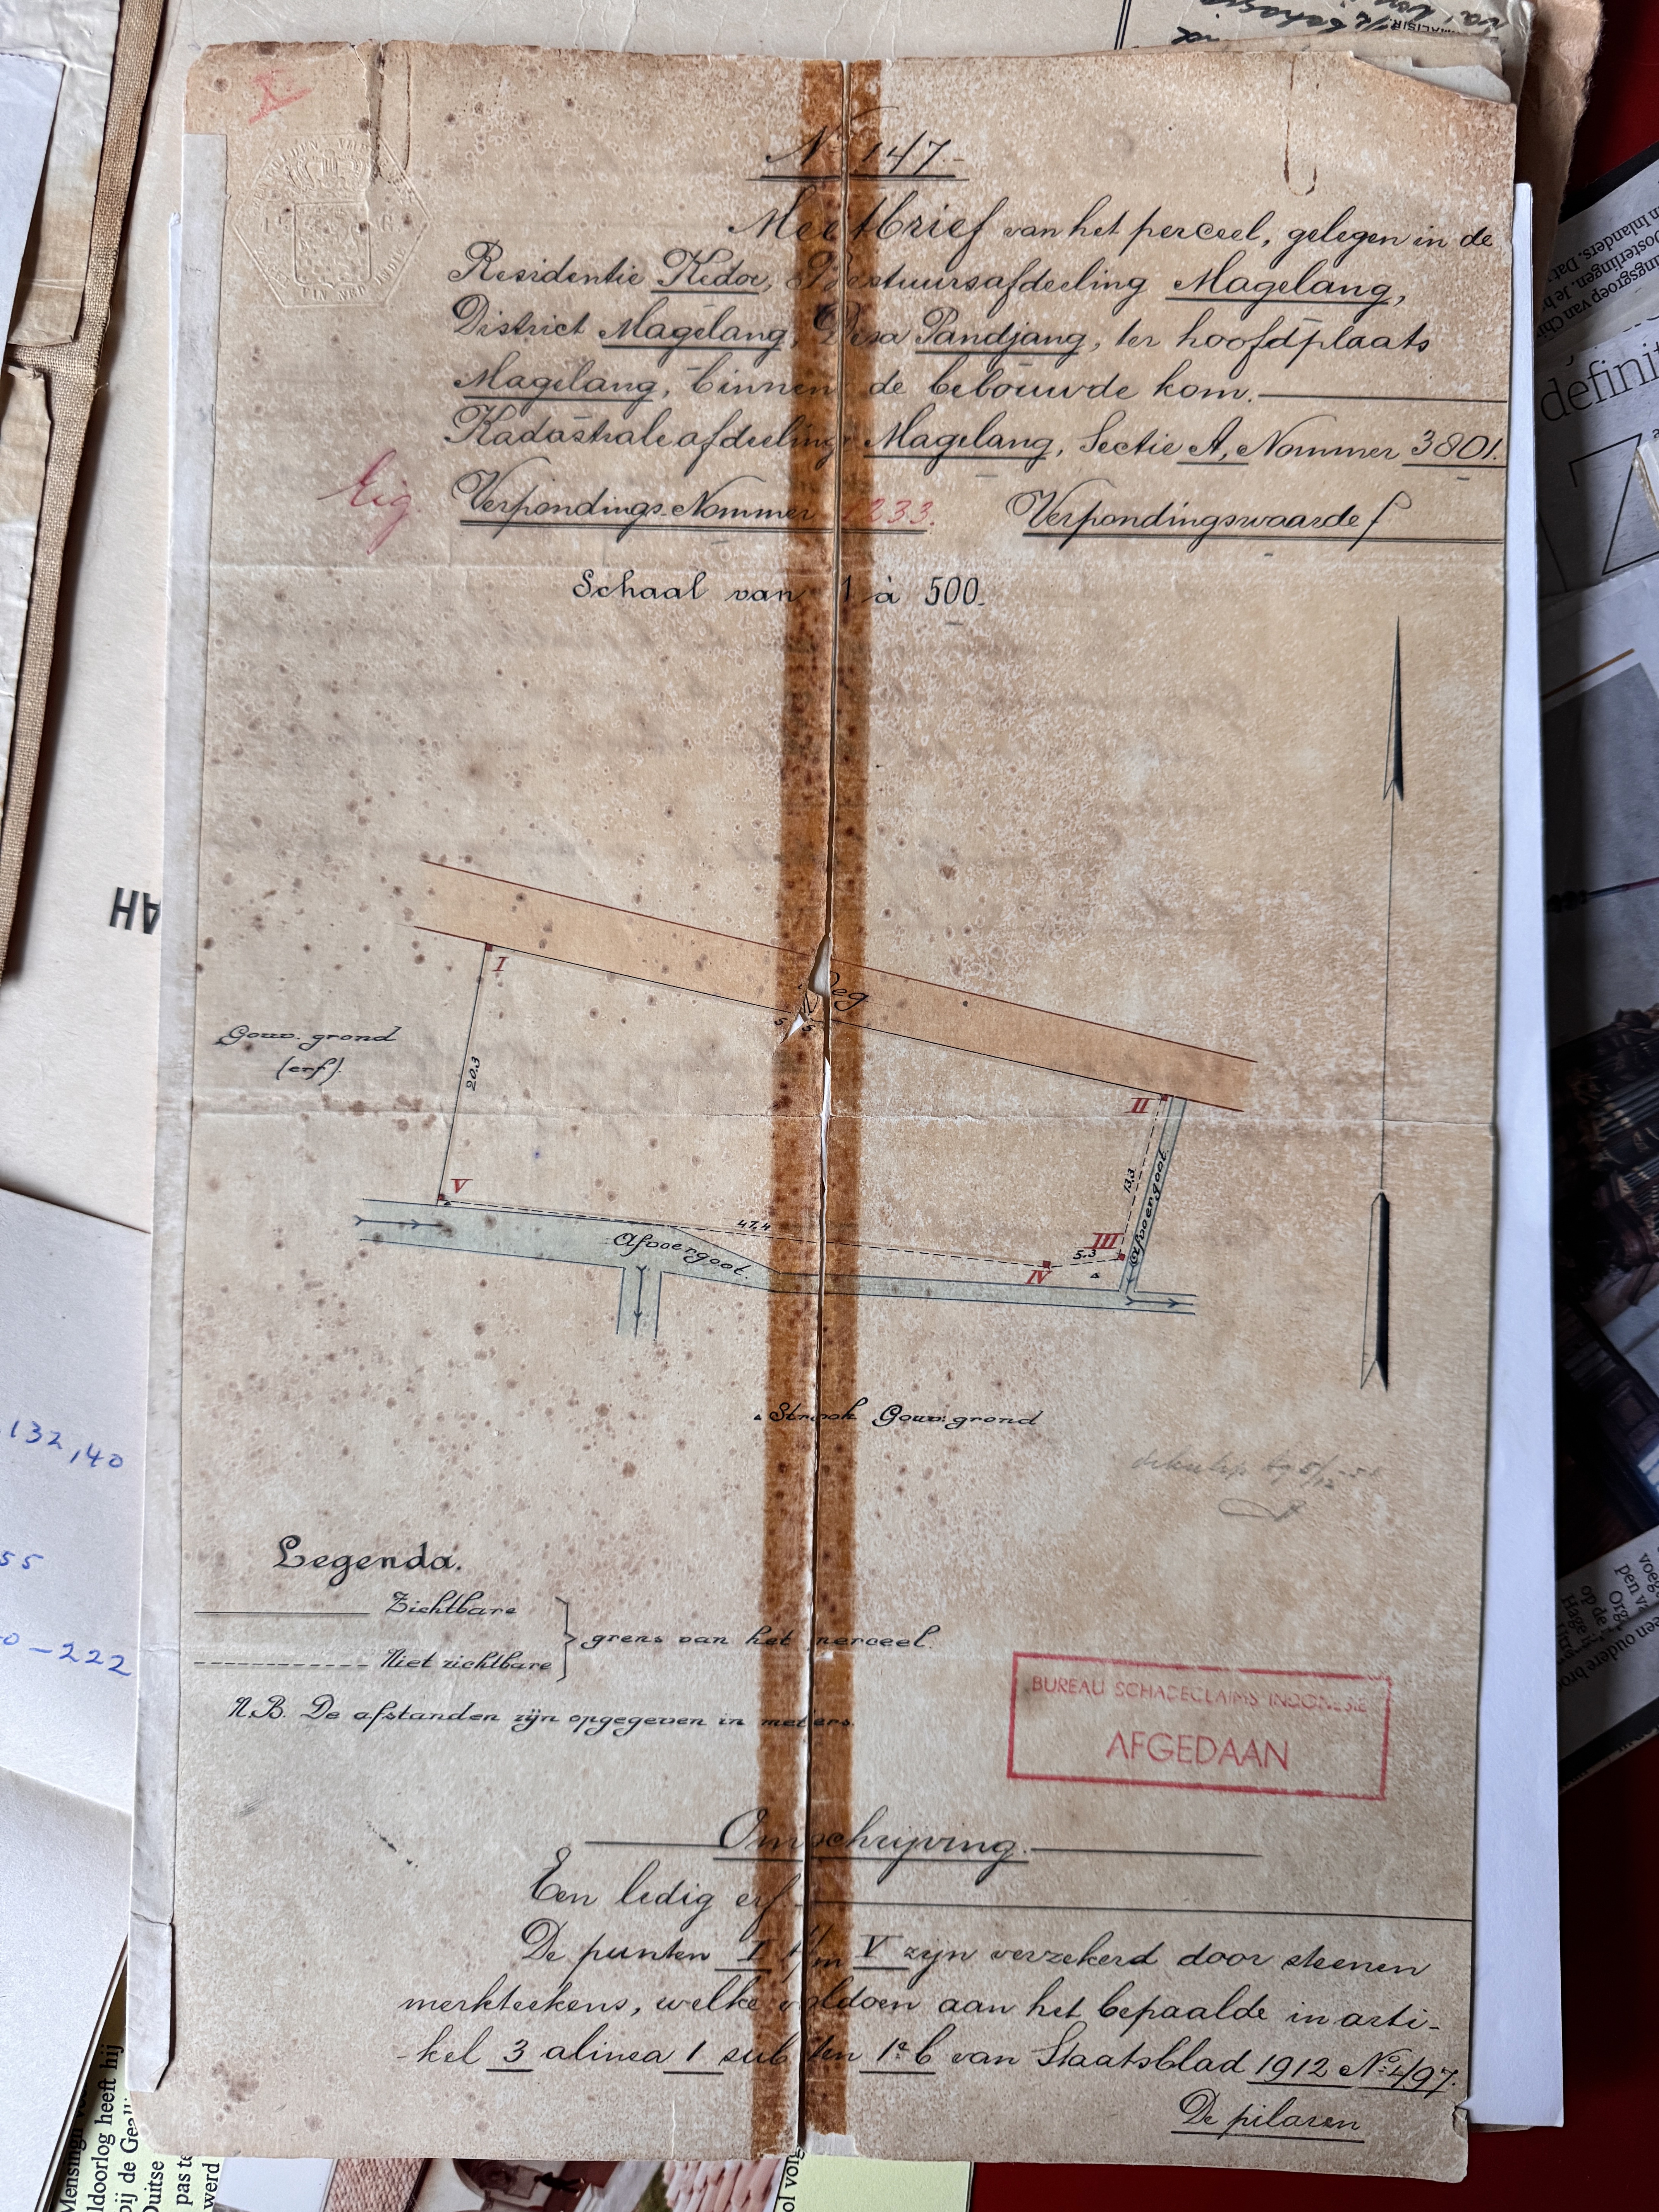 No 147.-
Meetbrief van het perceel, gelegen in de
Residentie Kedoe, Bestuursafdeeling Magelang,
District Magelang, Desa Pandjang, ter hoofdplaats
Magelang, binnen de bebouwde kom.
Kadastrale afdeeling Magelang, Sectie A, Nommer 3801.
Eig. Verpondings-Nommer 1233. Verpondingswaarde f
Schaal van 1 à 500.
Weg
I
Gouv. grond
(erf).
20.3
II
13.3
Afvoergoot.
V
47.4
Afvoergoot.
III
5.3
IV
Strook Gouv: grond
Legenda.
Zichtbare
grens van het perceel.
Niet zichtbare
N.B. De afstanden zijn opgegeven in meters.
BUREAU SCHADECLAIMS INDONESIE
AFGEDAAN
Omschrijving.
Een ledig erf.
De punten I t/m V zijn verzekerd door steenen
merkteekens, welke voldoen aan het bepaalde in arti-
-kel 3 alinea 1 sub ten 1e b van Staatsblad 1912 No 497.
De pilaren
132,40
55
-222
AH
definit